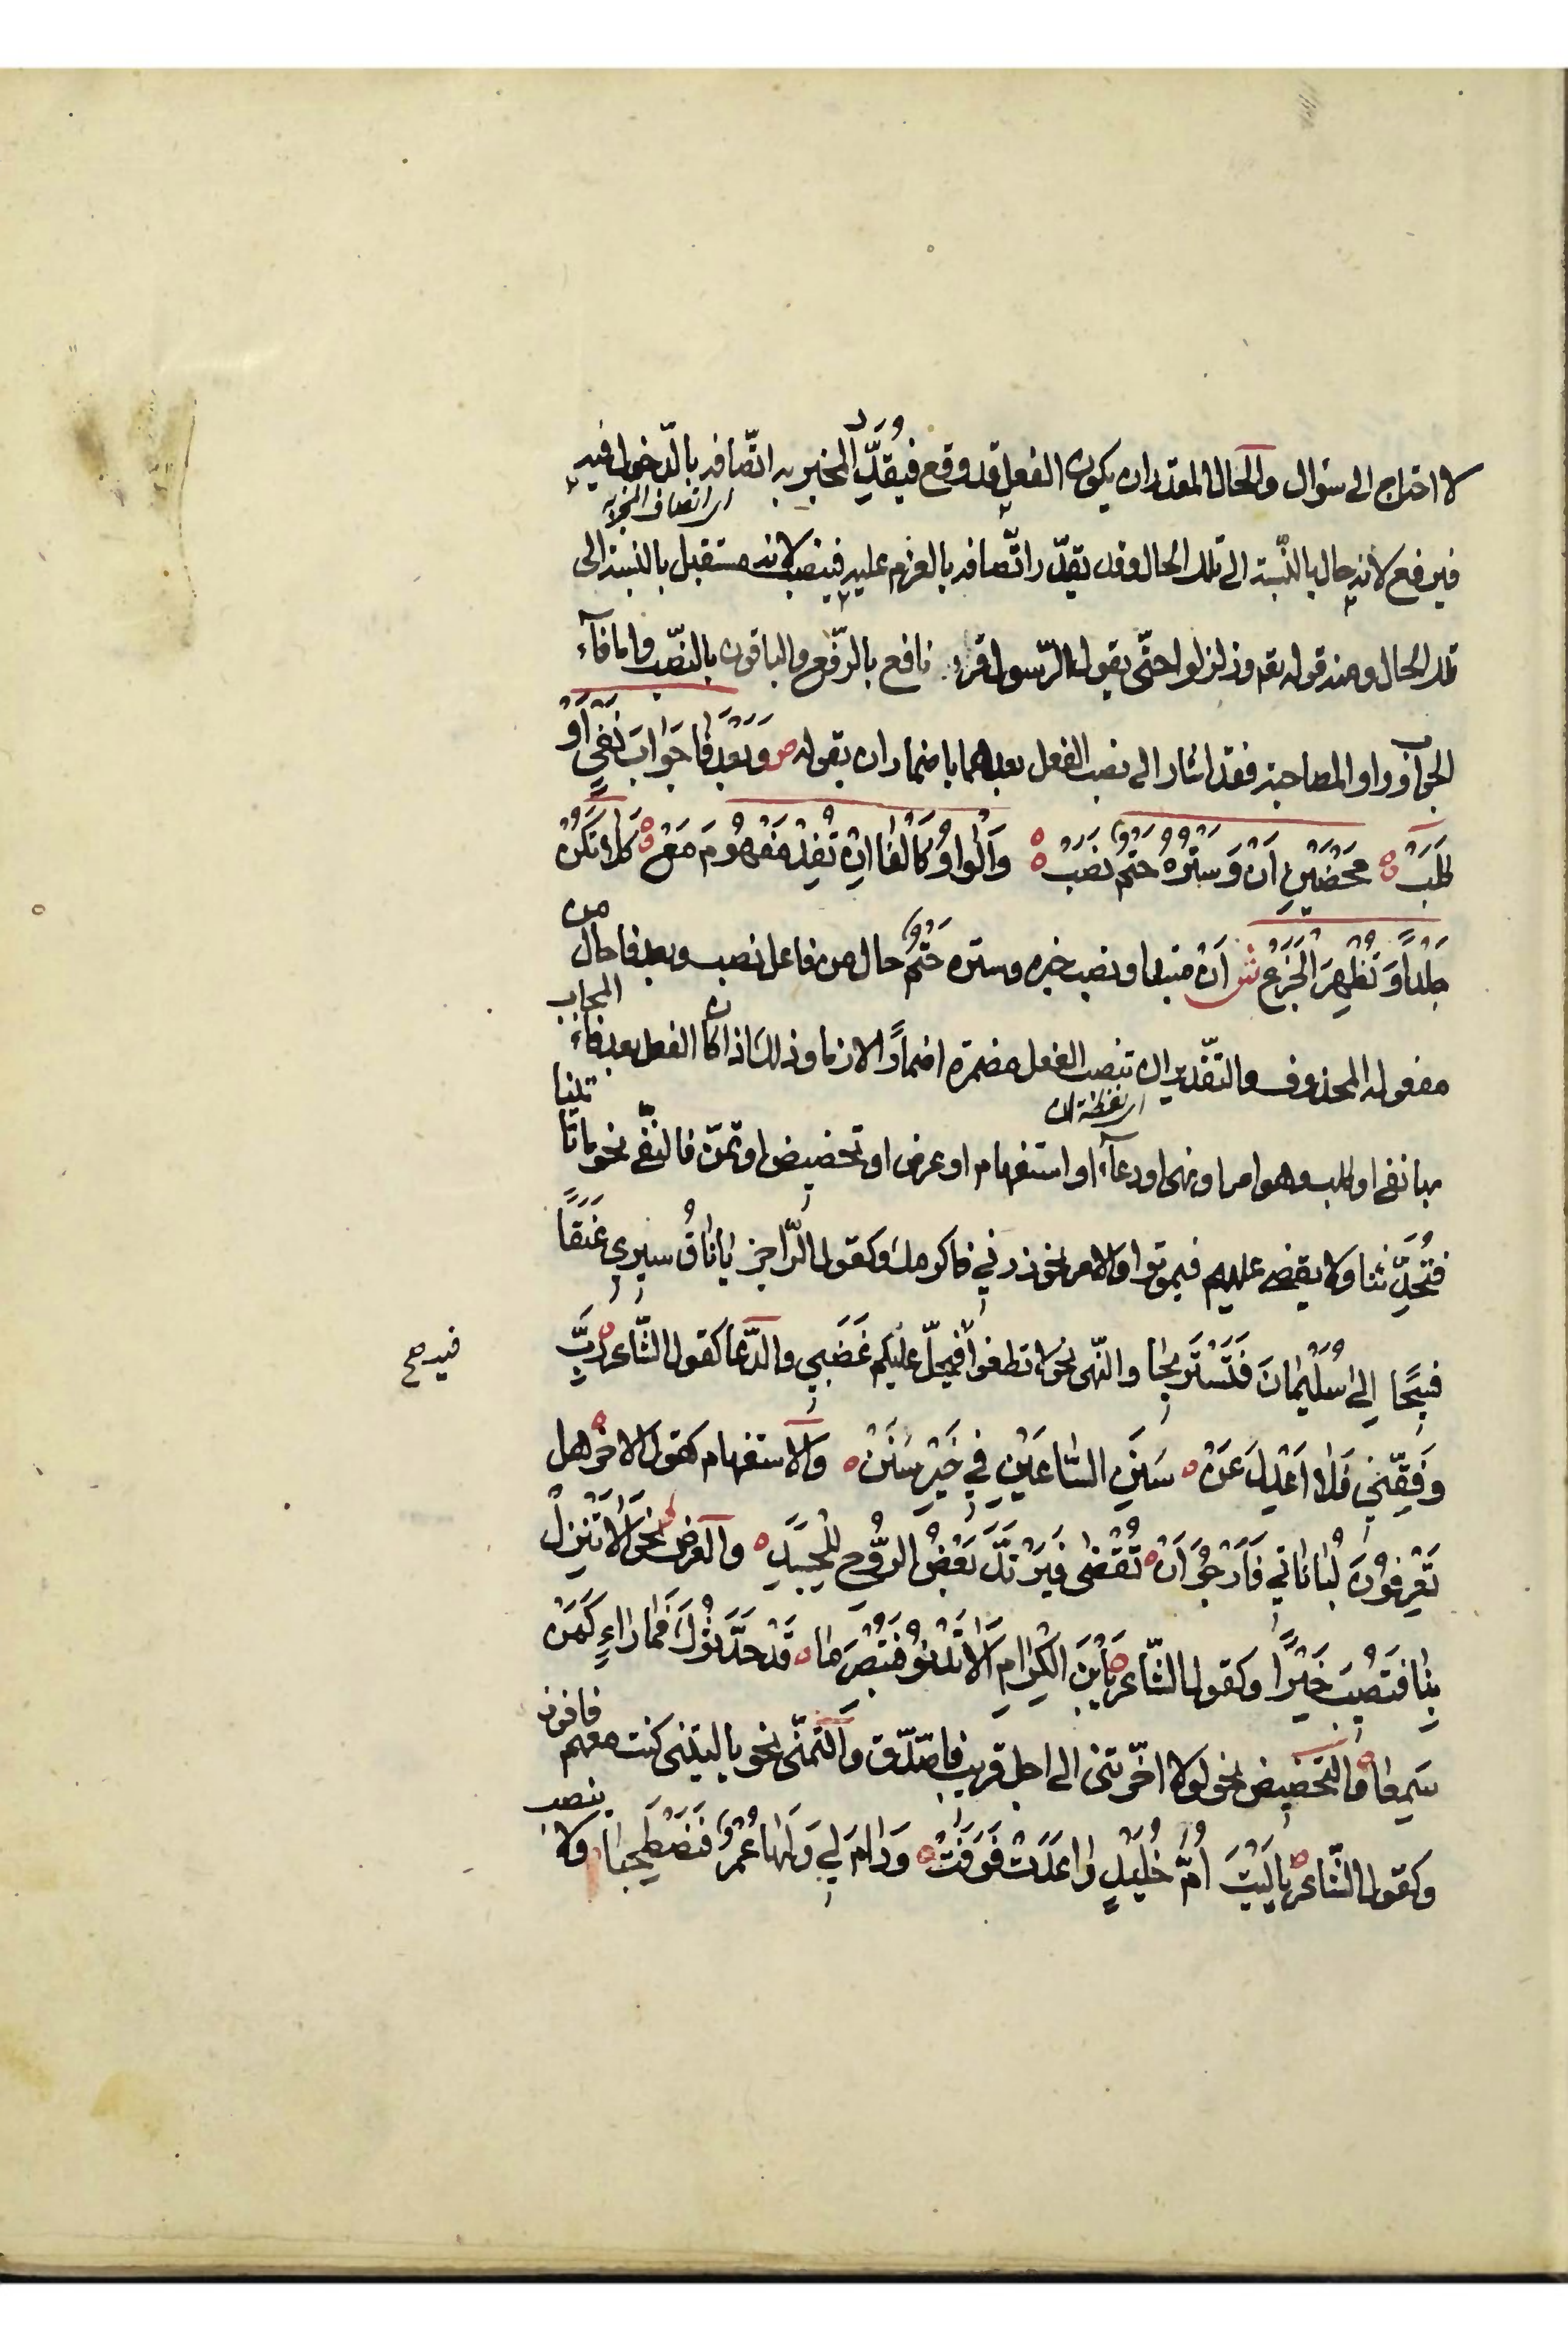 لا احتاج الى سؤال والحال المقدر ان يكون الفعل قد وقع فيقدر المخبر به اتّصافه بالدّخول فيه
اى اتصاف المخبر به
فيرفع لانه حال بالنّسبة الى تلك الحال وقد يقدّر اتّصافه بالعزم عليه فينصب لانه مستقبل بالنسبة الى
تلك الحال ومنه قوله تع وزلزلوا حتّى يقول الرّسول قرء نافع بالرّفع والباقون بالنصّب واما فآء
الجواب وواو المصاحبة فقد اشار الى نصب الفعل بعدهما باضمار ان بقوله ص وَبَعْدَ فَا جَوَابَ نَفْيٍ أَوْ
طَلَبْ مَحْضَيْنِ أَنْ وَسَتْرُهُ حَتْمٌ نَصَبْ وَالْوَاوُ كَالْفَا إنْ تُفِدْ مَفْهُومَ مَعْ كَلَا تَكُنْ
جَلْداً وَتُظْهِرَ الْجَزَعْ ش أَنْ مبتدا ونصب خبره وستره حَتْمٌ حال من فاعل نصب وبعد فا حال من
مفعوله المحذوف والتقّدير ان تنصب الفعل مضمرة اضمارًا لازما وذلك اذا كان الفعل بعد فآء المجاب
اى لفظة ان
بها نفى او طلب وهو امر او نهى او دعآء او استفهام او عرض او تحضيض او تمنّ فالنفّى نحو ما تاتينا
فَتُحَدِّثنا ولا يقضى عليهم فيموتوا والامر نحو زرنى فاكرمك وكقول الرّاجز يَا نَاقُ سِيرِي عَنَقًا
فَسِيحًا إِلى سُلَيْمَانَ فَنَسْتَرِيحَا والنّهى نحو لا تطغوا فيحلّ عليكم غَضَبِي والدّعا كقول الشّاعر رَبِّ
فيه صح
وَفِّقْنِي فَلَا أَعْدِلَ عَنْ سَنَنِ السَّاعَيْنِ فِي خَيْرِ سَنَنْ والاستفهام كقول الاخر هل
تَعْرِفُونَ لُبَانَاتِي فَأَرْجُوَ أَنْ تُقْضَى فَيَرْتَدَّ بَعْضُ الرُّوحِ لِلْجَسَدِ والعرض نحو أَلَا تَنْزِلْ
بِنَا فَتَصِيبَ خَيْرًا وكقول الشّاعر يَابْنَ الْكِرَامِ أَلَا تَدْنُو فَتُبْصِرَ مَا قَدْ حَدَّثُوكَ فَمَا رَاءٍ كَمَنْ
سَمِعَا والتّحضيض نحو لولا اخّرتنى الى اجل قريب فاصّدّق والتّمنّى نحو يا ليتنى كنت معهم فافوز
وكقول الشّاعر يَا لَيْتَ أُمَّ خُلَيْدٍ وَاعَدَتْ فَوَفَتْ وَدَامَ لِي وَلَهَا عُمْرٌ فَنَصْطَحِبَا ولا ينصب